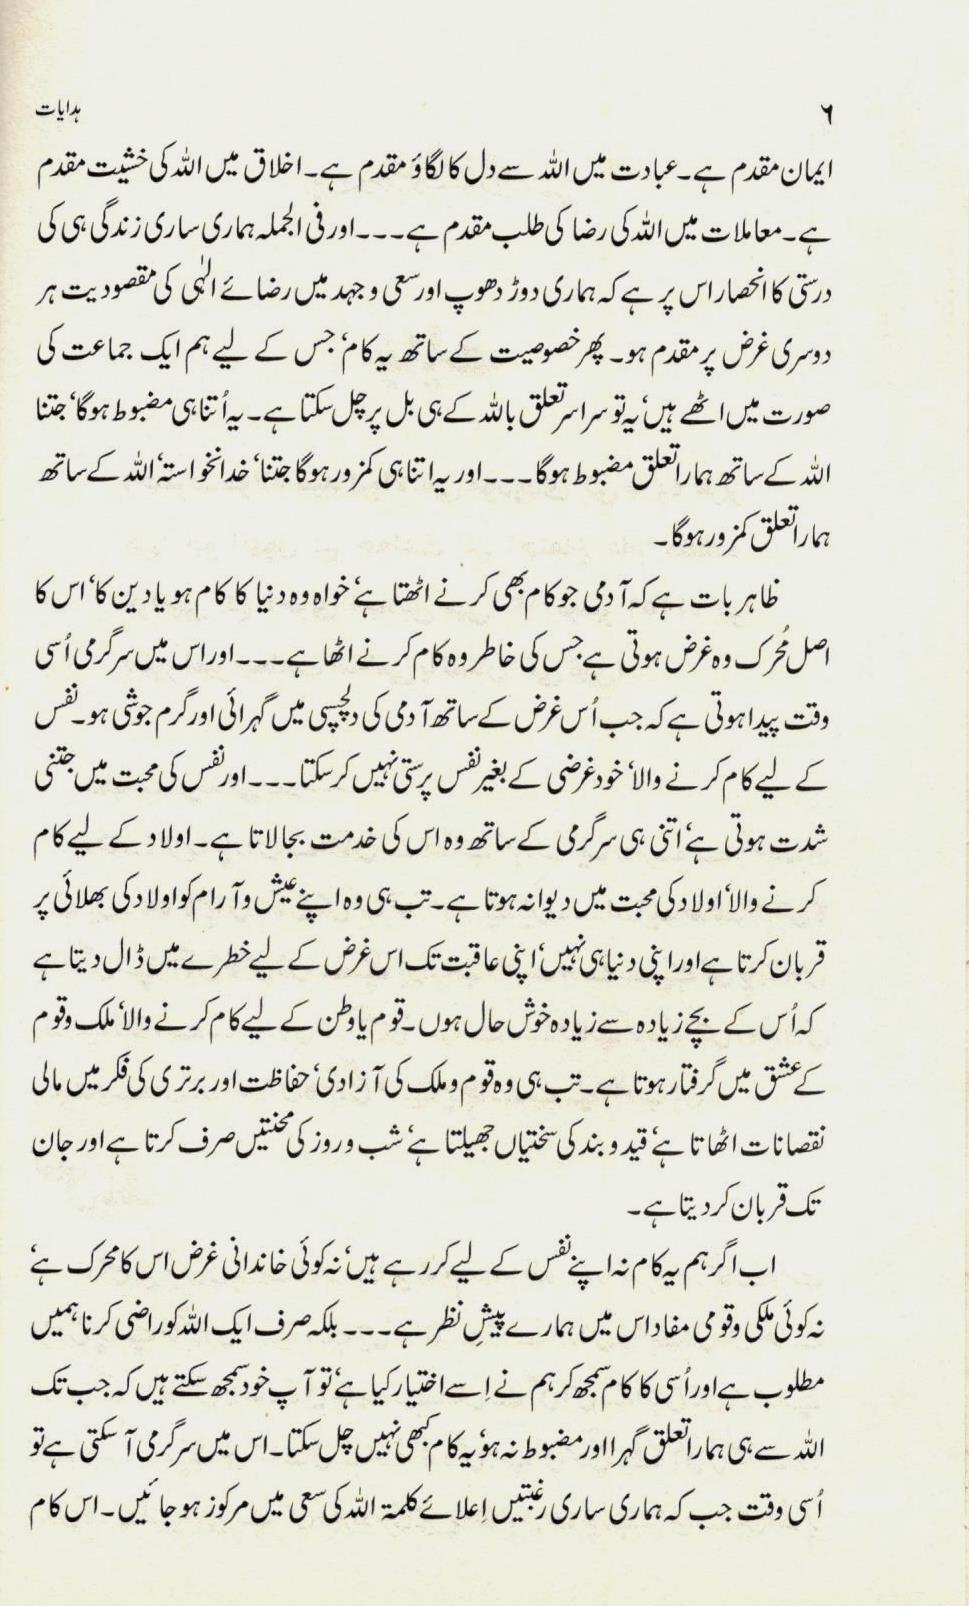 ۶ ہدایات
ایمان مقدم ہے۔ عبادت میں اللہ سے دل کا لگاؤ مقدم ہے۔ اخلاق میں اللہ کی خشیت مقدم
ہے۔ معاملات میں اللہ کی رضا کی طلب مقدم ہے۔۔۔ اور فی الجملہ ہماری ساری زندگی ہی کی
درستی کا انحصار اس پر ہے کہ ہماری دوڑ دھوپ اور سعی و جہد میں رضائے الٰہی کی مقصودیت ہر
دوسری غرض پر مقدم ہو۔ پھر خصوصیت کے ساتھ یہ کام‘ جس کے لیے ہم ایک جماعت کی
صورت میں اٹھے ہیں‘ یہ تو سراسر تعلق باللہ کے ہی بل پر چل سکتا ہے۔ یہ اُتنا ہی مضبوط ہوگا‘ جتنا
اللہ کے ساتھ ہمارا تعلق مضبوط ہوگا۔۔۔ اور یہ اتنا ہی کمزور ہوگا جتنا‘ خدانخواستہ‘ اللہ کے ساتھ
ہمارا تعلق کمزور ہوگا۔
ظاہر بات ہے کہ آدمی جو کام بھی کرنے اٹھتا ہے‘ خواہ وہ دنیا کا کام ہو یا دین کا‘ اس کا
اصل مُحرک وہ غرض ہوتی ہے جس کی خاطر وہ کام کرنے اٹھا ہے۔۔۔ اور اس میں سرگرمی اُسی
وقت پیدا ہوتی ہے کہ جب اُس غرض کے ساتھ آدمی کی دلچسپی میں گہرائی اور گرم جوشی ہو۔ نفس
کے لیے کام کرنے والا‘ خودغرضی کے بغیر نفس پرستی نہیں کرسکتا۔۔۔ اور نفس کی محبت میں جتنی
شدت ہوتی ہے‘ اتنی ہی سرگرمی کے ساتھ وہ اس کی خدمت بجا لاتا ہے۔ اولاد کے لیے کام
کرنے والا‘ اولاد کی محبت میں دیوانہ ہوتا ہے۔ تب ہی وہ اپنے عیش و آرام کو اولاد کی بھلائی پر
قربان کرتا ہے اور اپنی دنیا ہی نہیں‘ اپنی عاقبت تک اس غرض کے لیے خطرے میں ڈال دیتا ہے
کہ اُس کے بچے زیادہ سے زیادہ خوش حال ہوں۔ قوم یا وطن کے لیے کام کرنے والا‘ ملک و قوم
کے عشق میں گرفتار ہوتا ہے۔ تب ہی وہ قوم و ملک کی آزادی‘ حفاظت اور برتری کی فکر میں مالی
نقصانات اٹھاتا ہے‘ قید و بند کی سختیاں جھیلتا ہے‘ شب و روز کی محنتیں صرف کرتا ہے اور جان
تک قربان کردیتا ہے۔
اب اگر ہم یہ کام نہ اپنے نفس کے لیے کررہے ہیں‘ نہ کوئی خاندانی غرض اس کا محرک ہے‘
نہ کوئی ملکی و قومی مفاد اس میں ہمارے پیشِ نظر ہے۔۔۔ بلکہ صرف ایک اللہ کو راضی کرنا ہمیں
مطلوب ہے اور اُسی کا کام سمجھ کر ہم نے اِسے اختیار کیا ہے‘ تو آپ خود سمجھ سکتے ہیں کہ جب تک
اللہ سے ہی ہمارا تعلق گہرا اور مضبوط نہ ہو‘ یہ کام کبھی نہیں چل سکتا۔ اس میں سرگرمی آسکتی ہے تو
اُسی وقت جب کہ ہماری ساری رغبتیں اِعلائے کلمۃ اللہ کی سعی میں مرکوز ہوجائیں۔ اس کام